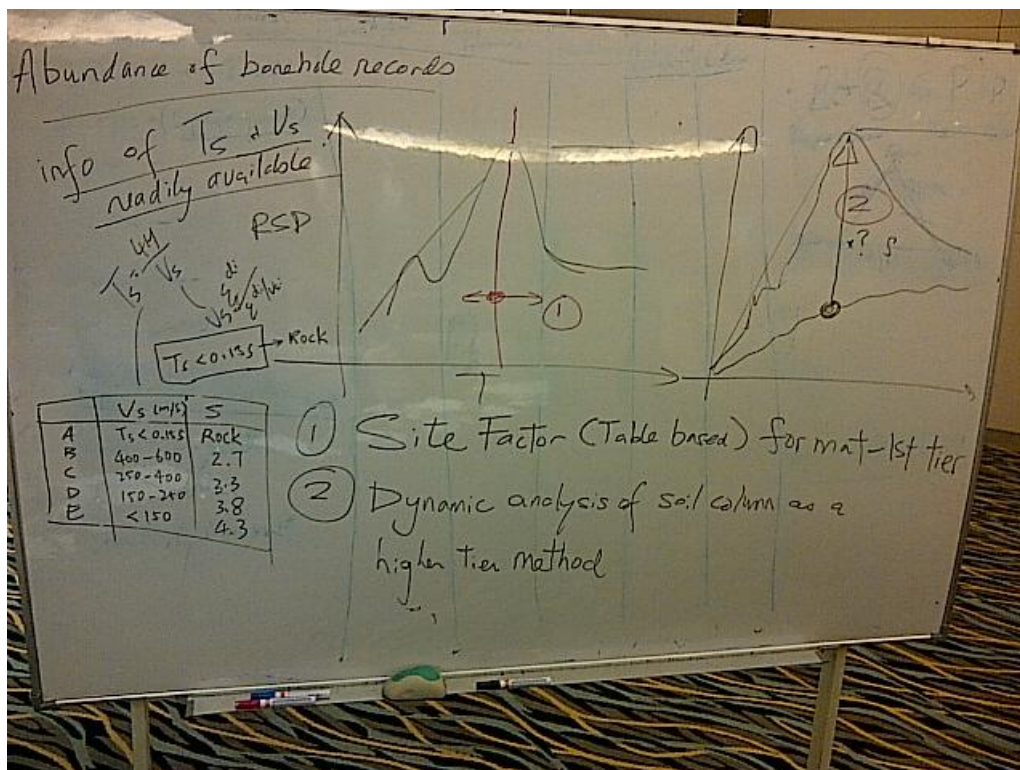 Abundance of borehole records
info of Ts & Vs
readily available
RSD
4H
Ts = Vs
di
Vs = di/vi
Ts < 0.15s → Rock
T
1
2
*? S
Vs (m/s) S
A Ts < 0.15s Rock
B 400-600 2.7
C 250-400 3.3
D 150-250 3.8
E < 150 4.3
1 Site Factor (Table based) format-1st tier
2 Dynamic analysis of soil column as a
higher Tier method